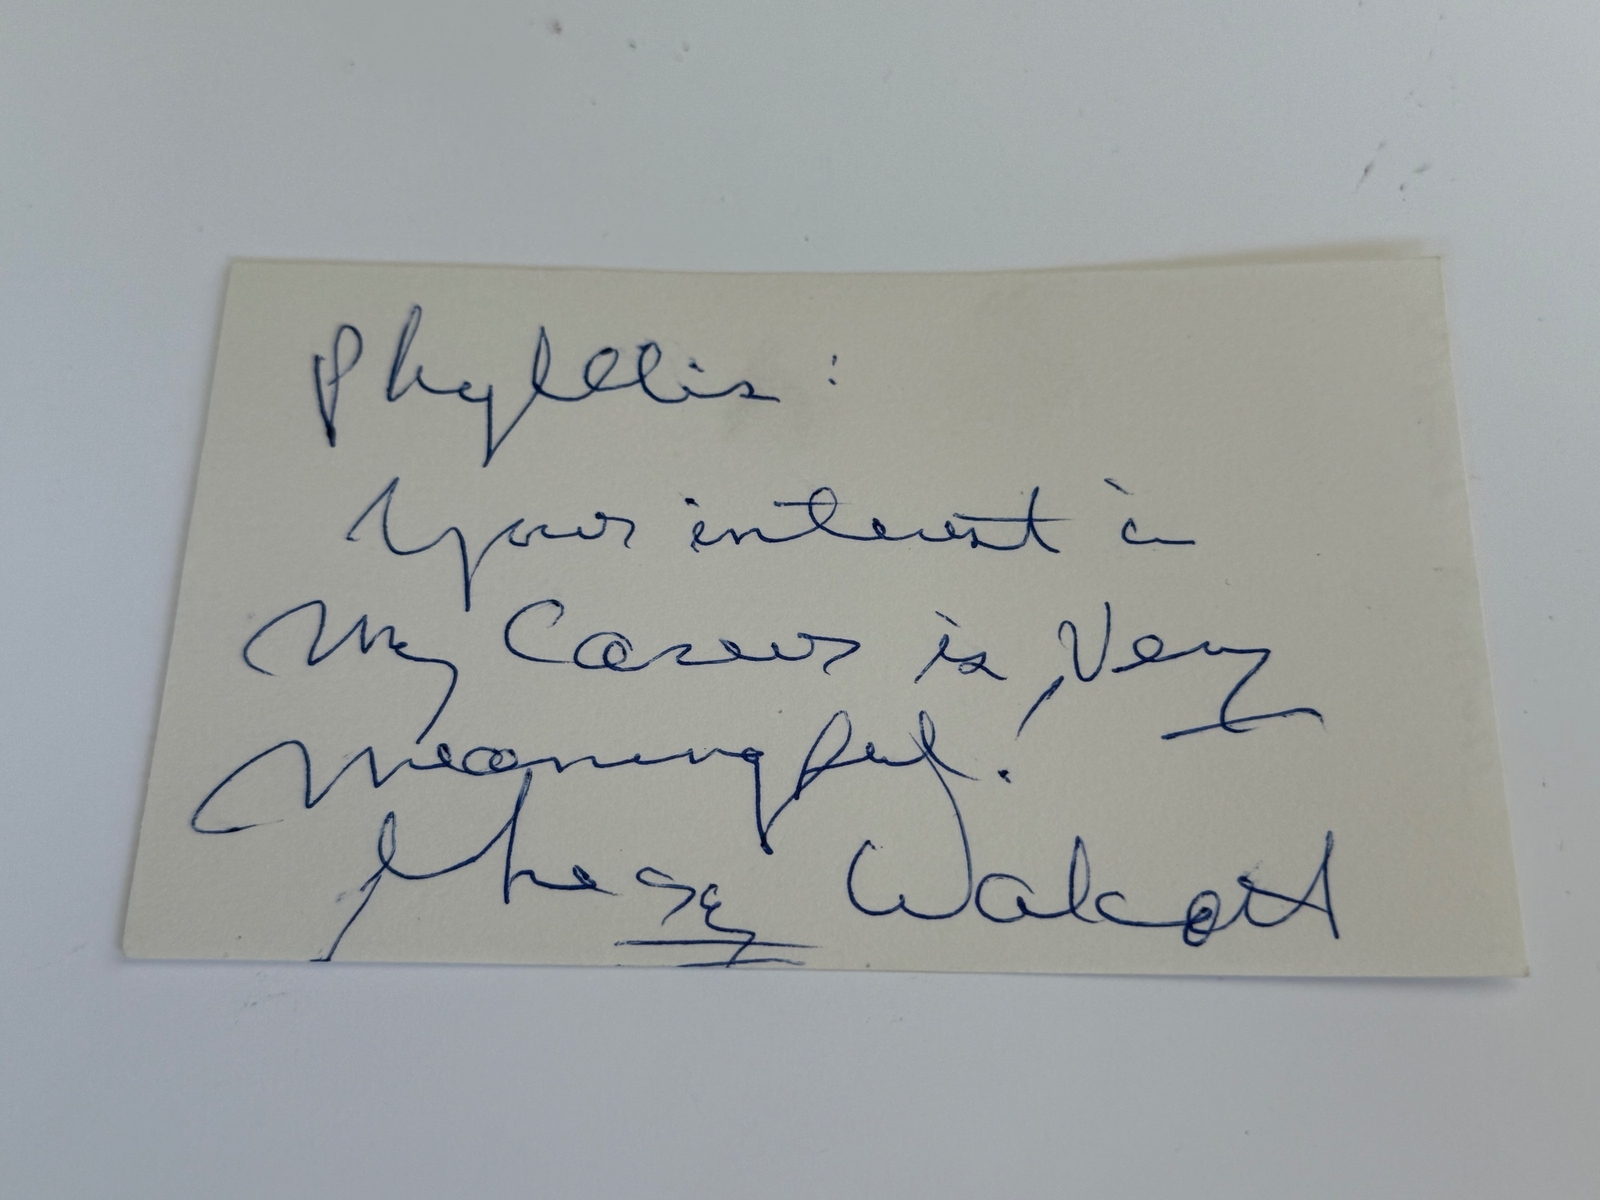 Phyllis:
Your interest in
My Career is Very
Meaningful!
Gregory Walcott